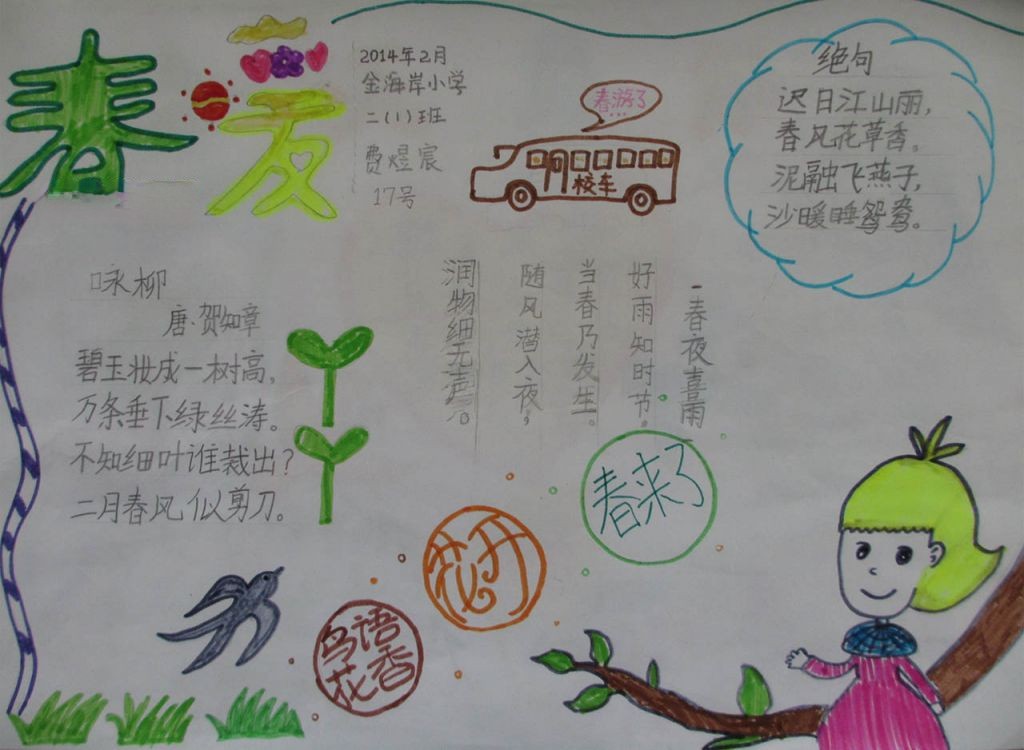 春 爱
2014年2月
金海岸小学
二(1)班
费煜宸
17号
春游了
校车
绝句
迟日江山丽,
春风花草香。
泥融飞燕子,
沙暖睡鸳鸯。
咏柳
唐·贺知章
碧玉妆成一树高,
万条垂下绿丝涛。
不知细叶谁裁出?
二月春风似剪刀。
春夜喜雨
好雨知时节。
当春乃发生。
随风潜入夜,
润物细无声。
春来了
花开
鸟语
花香